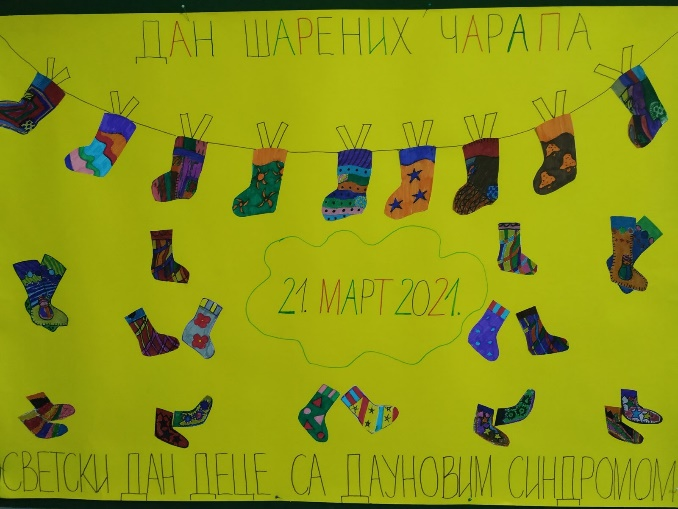 ДАН ШАРЕНИХ ЧАРАПА
21. МАРТ 2021.
СВЕТСКИ ДАН ДЕЦЕ СА ДАУНОВИМ СИНДРОМОМ